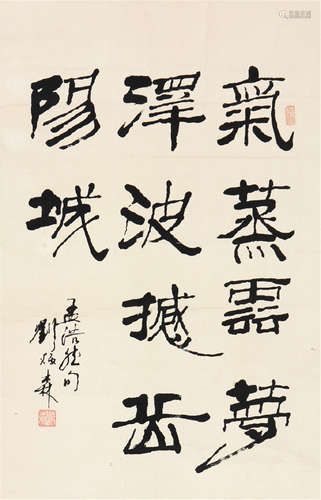 氣蒸雲夢
澤波撼岳
陽城
孟浩然句
劉炳森